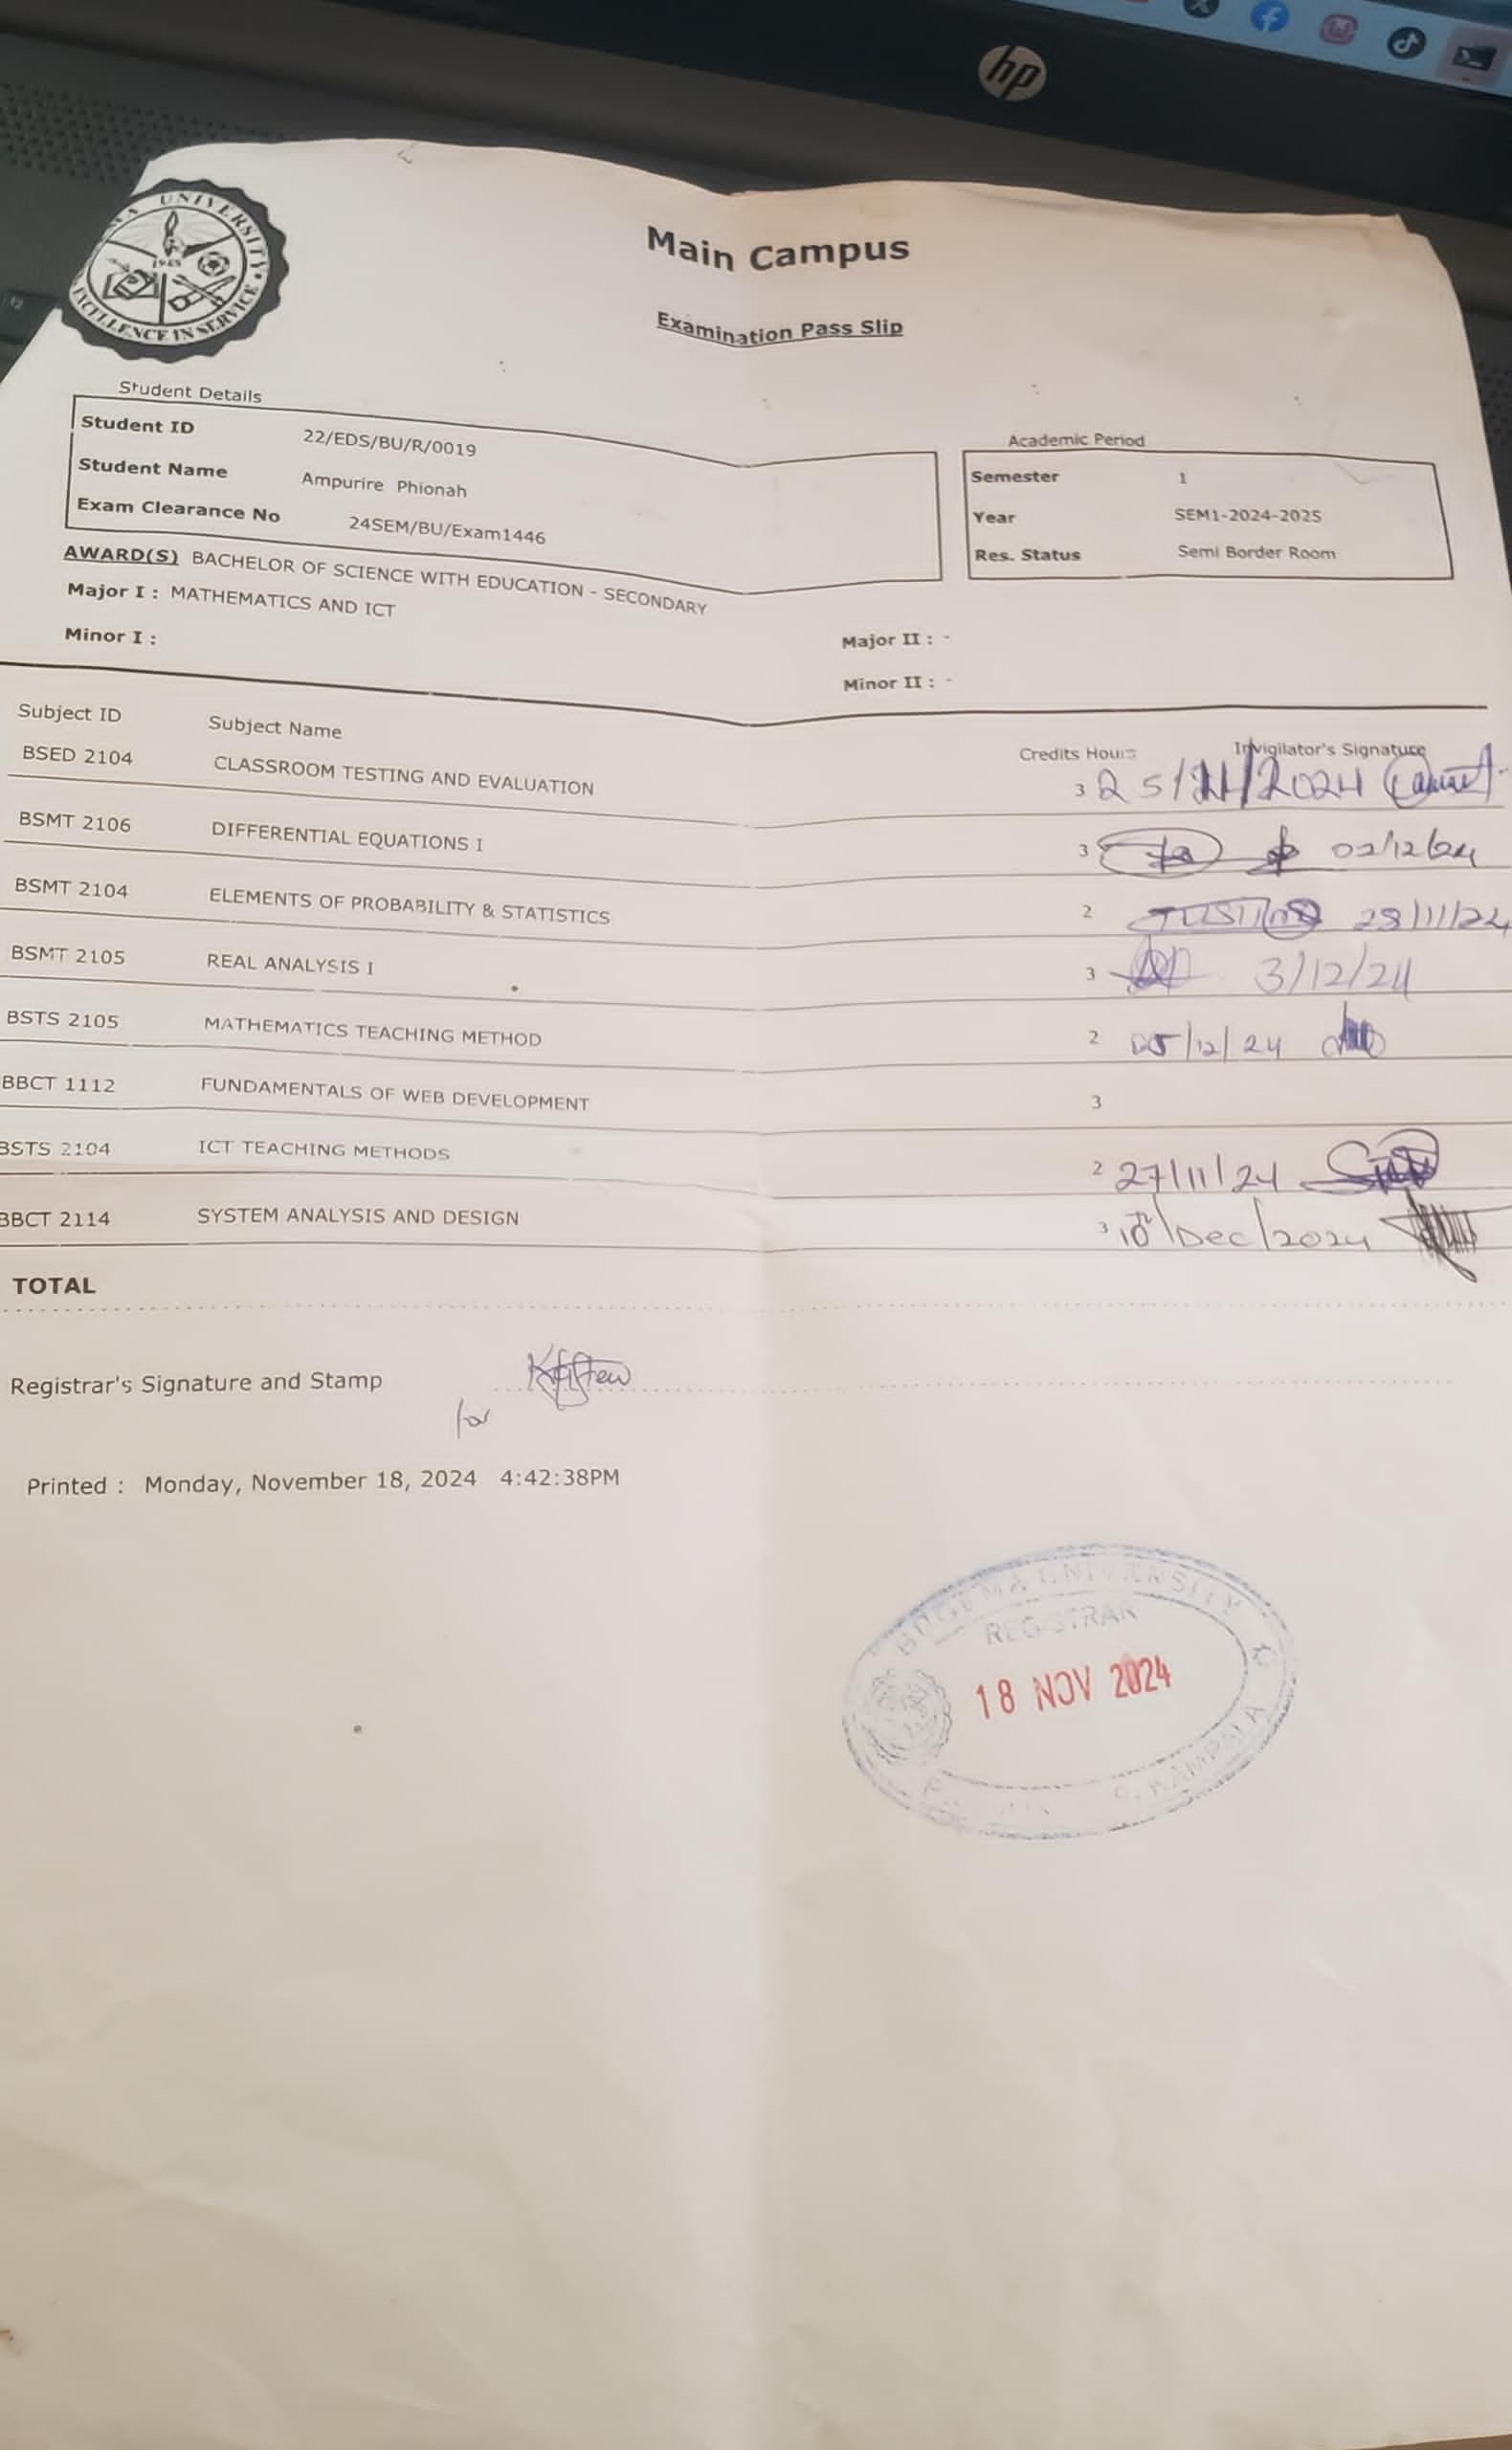 hp
UNIVERSITY
1948
EXCELLENCE IN SERVICE
Main Campus
Examination Pass Slip
Student Details
Student ID 22/EDS/BU/R/0019
Student Name Ampurire Phionah
Exam Clearance No 24SEM/BU/Exam1446
Academic Period
Semester 1
Year SEM1-2024-2025
Res. Status Semi Border Room
AWARD(S) BACHELOR OF SCIENCE WITH EDUCATION - SECONDARY
Major I : MATHEMATICS AND ICT
Major II : -
Minor I :
Minor II : -
Subject ID Subject Name Credits Hours Invigilator's Signature
BSED 2104 CLASSROOM TESTING AND EVALUATION 3 25/11/2024
BSMT 2106 DIFFERENTIAL EQUATIONS I 3 02/12/24
BSMT 2104 ELEMENTS OF PROBABILITY & STATISTICS 2 28/11/24
BSMT 2105 REAL ANALYSIS I 3 3/12/24
BSTS 2105 MATHEMATICS TEACHING METHOD 2 05/12/24
BBCT 1112 FUNDAMENTALS OF WEB DEVELOPMENT 3
BSTS 2104 ICT TEACHING METHODS 2 27/11/24
BBCT 2114 SYSTEM ANALYSIS AND DESIGN 3 10th/Dec/2024
TOTAL
Registrar's Signature and Stamp
for
Printed : Monday, November 18, 2024 4:42:38PM
BUGEMA UNIVERSITY
REGISTRAR
18 NOV 2024
KAMPALA